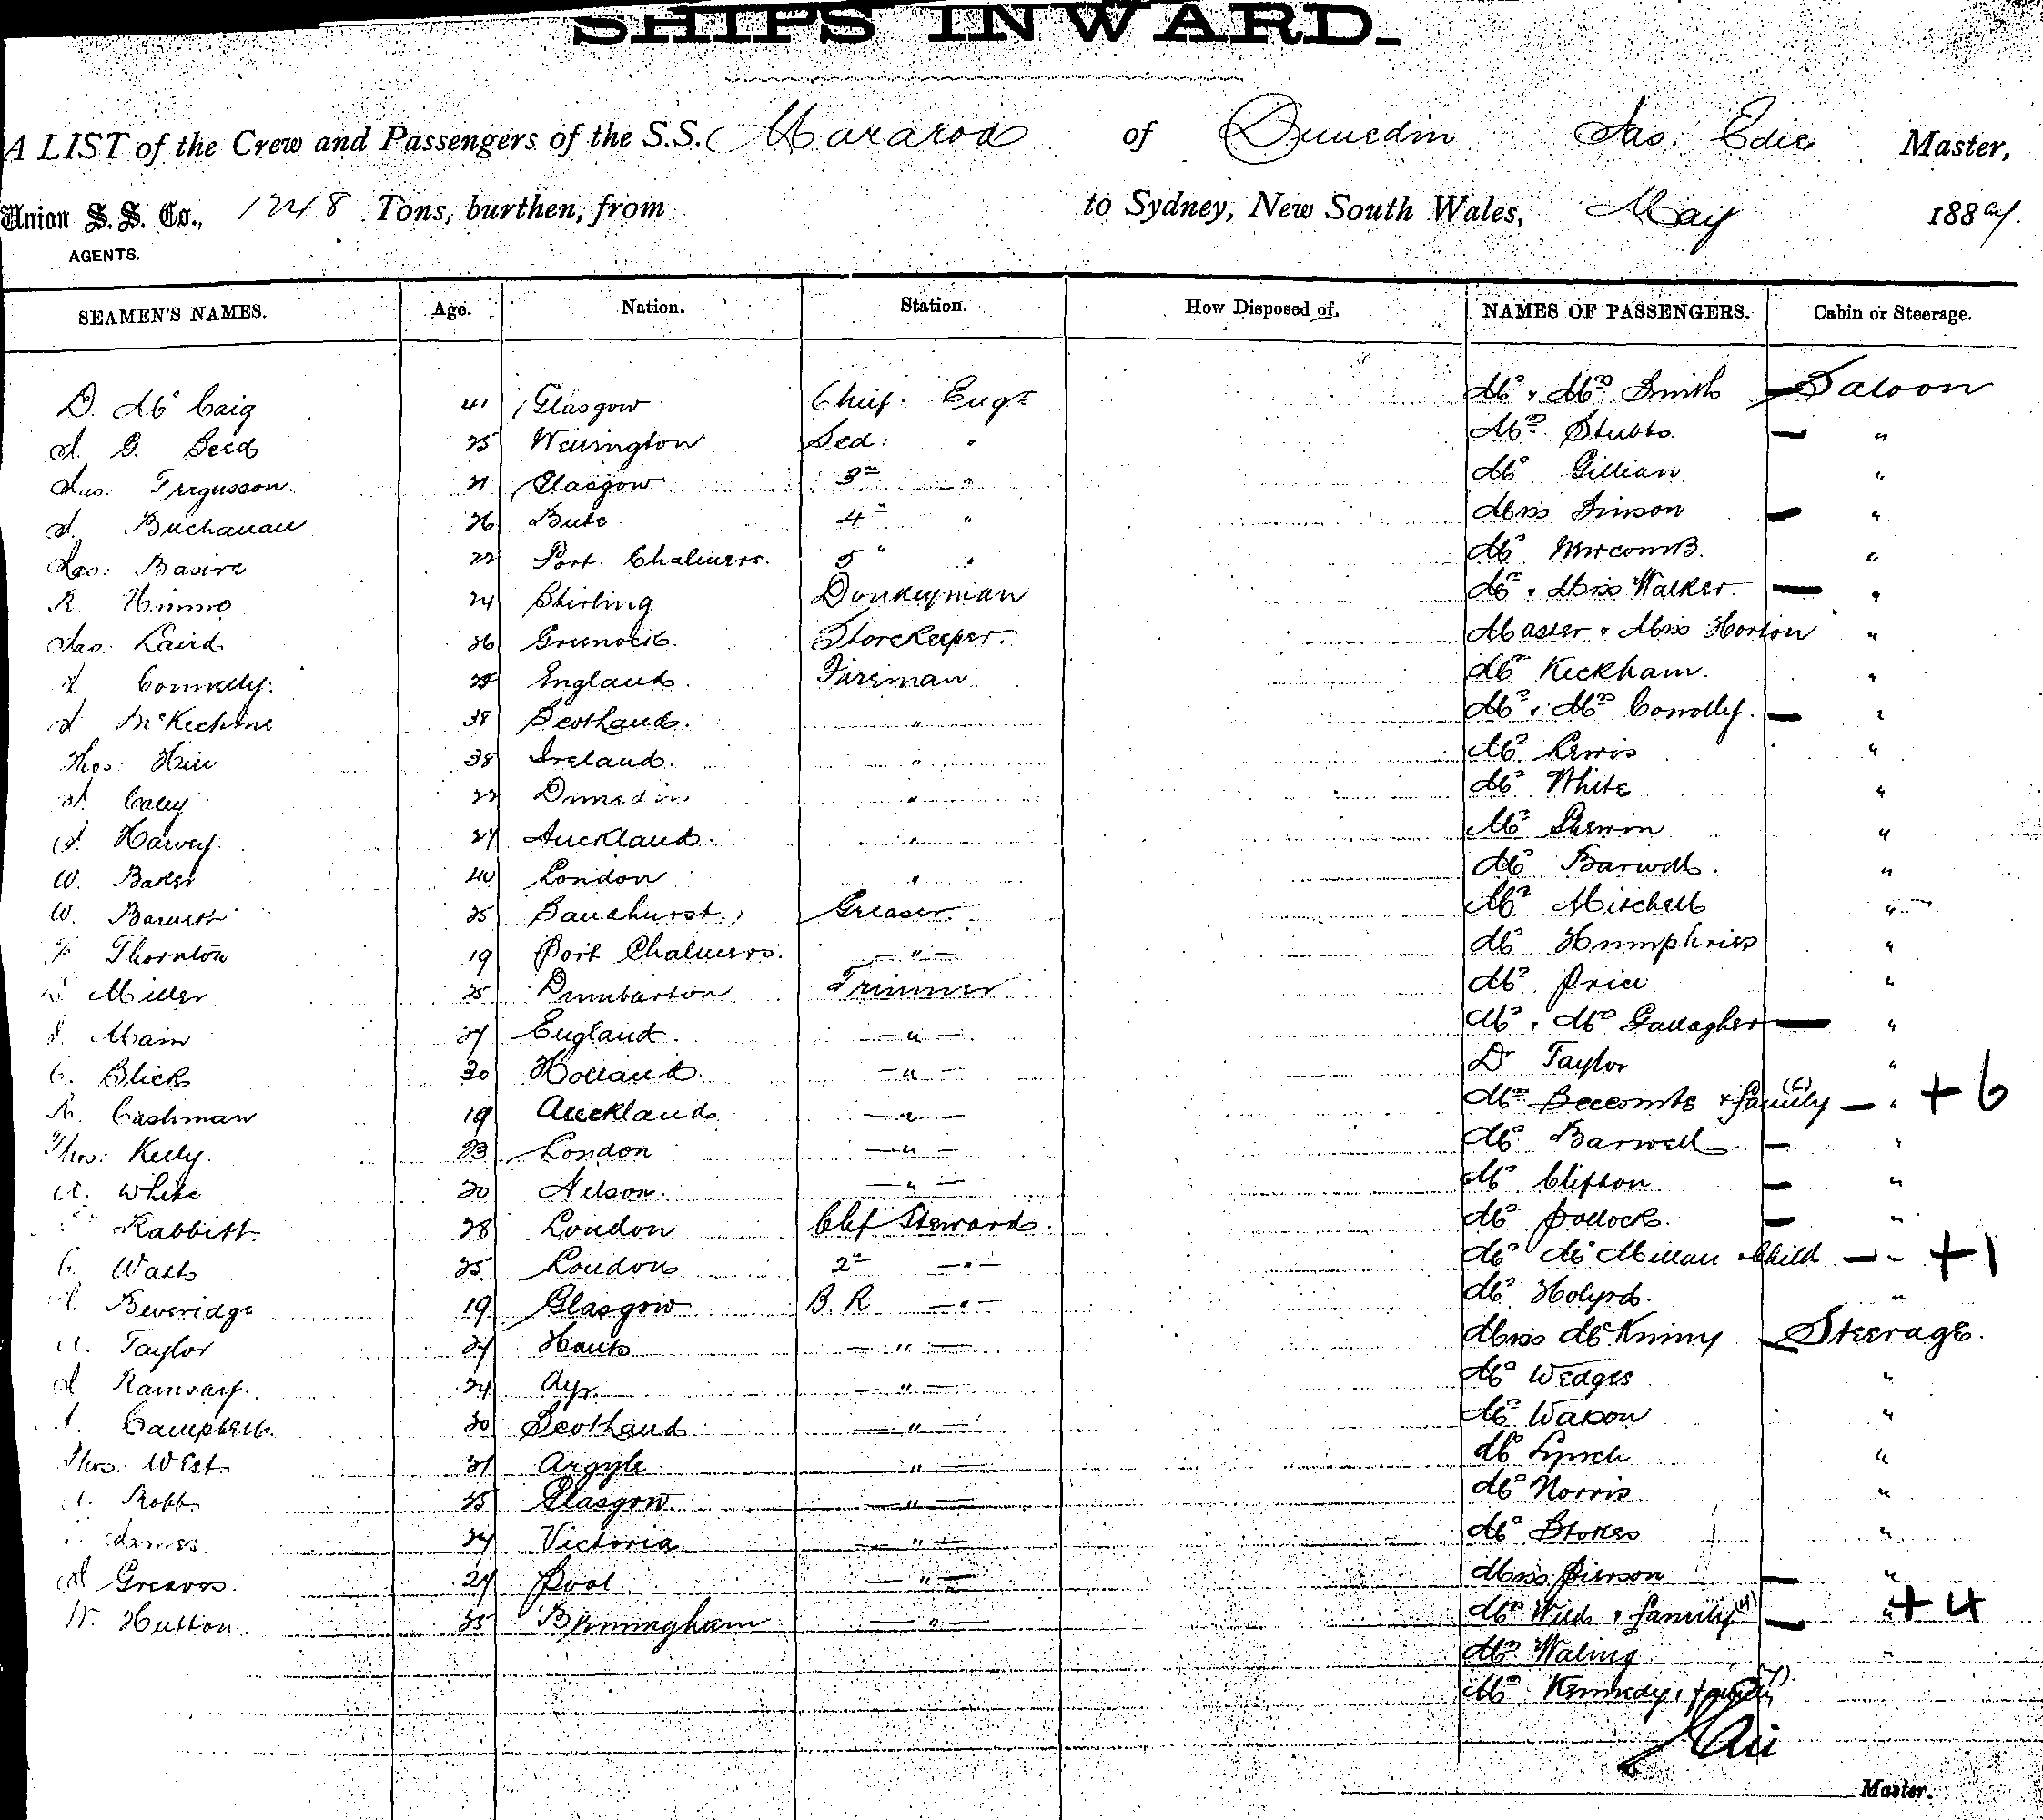 SHIPS INWARD.
A LIST of the Crew and Passengers of the S.S. Mararoa of Dunedin Jas. Edie Master,
Union S. S. Co., 1248 Tons, burthen, from to Sydney, New South Wales, May 1889.
AGENTS.
SEAMEN'S NAMES. Age. Nation. Station. How Disposed of. NAMES OF PASSENGERS. Cabin or Steerage.
D. Mc Caig 41 Glasgow Chief Engr Mr & Mrs Smith Saloon
J. G. Seed 25 Wellington Sed: " Mrs Stubbs "
Jas: Fergusson 21 Glasgow 3rd " Mr Gillian "
J. Buchanan 26 Bute 4th " Miss Simson "
Jas: Basire 22 Port Chalmers 5" " Mr Newcomb "
R. Nimmo 24 Stirling Donkeyman Mr & Miss Walker "
Jas: Laird 26 Greenock Storekeeper Master & Miss Horton "
J Connelly England Fireman Mr Keckham "
J McKechnie 38 Scotland " Mr & Mrs Conolly "
Thos: Hill 38 Ireland " Mr Lewis "
J. Caley 22 Dunedin " Mr White "
J. Harvey 24 Auckland " Mr Sherwin "
W. Baker 40 London " Mr Barwell "
W. 25 Sandhurst Greaser Mr Mitchell "
Thornton 19 Port Chalmers " Mr Humphries "
Miller 25 Dumbarton Trimmer Mr Price "
Main 24 England " Mr & Mrs Gallagher "
C. Blick 30 Holland " Dr Taylor "
R. Cashman 19 Auckland " Mrs & family (6) " +6
Thos: Kelly 23 London " Mr Barwell "
A. White 20 Nelson " Mr Clifton "
Rabbitt 28 London Chf Steward Mr Pollock "
C. Watts 25 London 2nd " Mr McMillan & Child " +1
Beveridge 19 Glasgow B. R " Mr Holyrd "
A. Taylor 24 Hants " Miss McKinny Steerage
J Ramsay 24 Ayr " Mr Wedges "
Campbell 20 Scotland " Mr Watson "
Thos: West 21 Argyle " Mr Lynch "
Robb 25 Glasgow " Mr Norris "
James 24 Victoria " Mr Stokes "
J Greaves 24 Pool " Miss Pierson "
W. Hutton 25 Birmingham " Mrs Wild & family (4) " +4
Mrs Waling "
Mr Kennedy & family
Master.